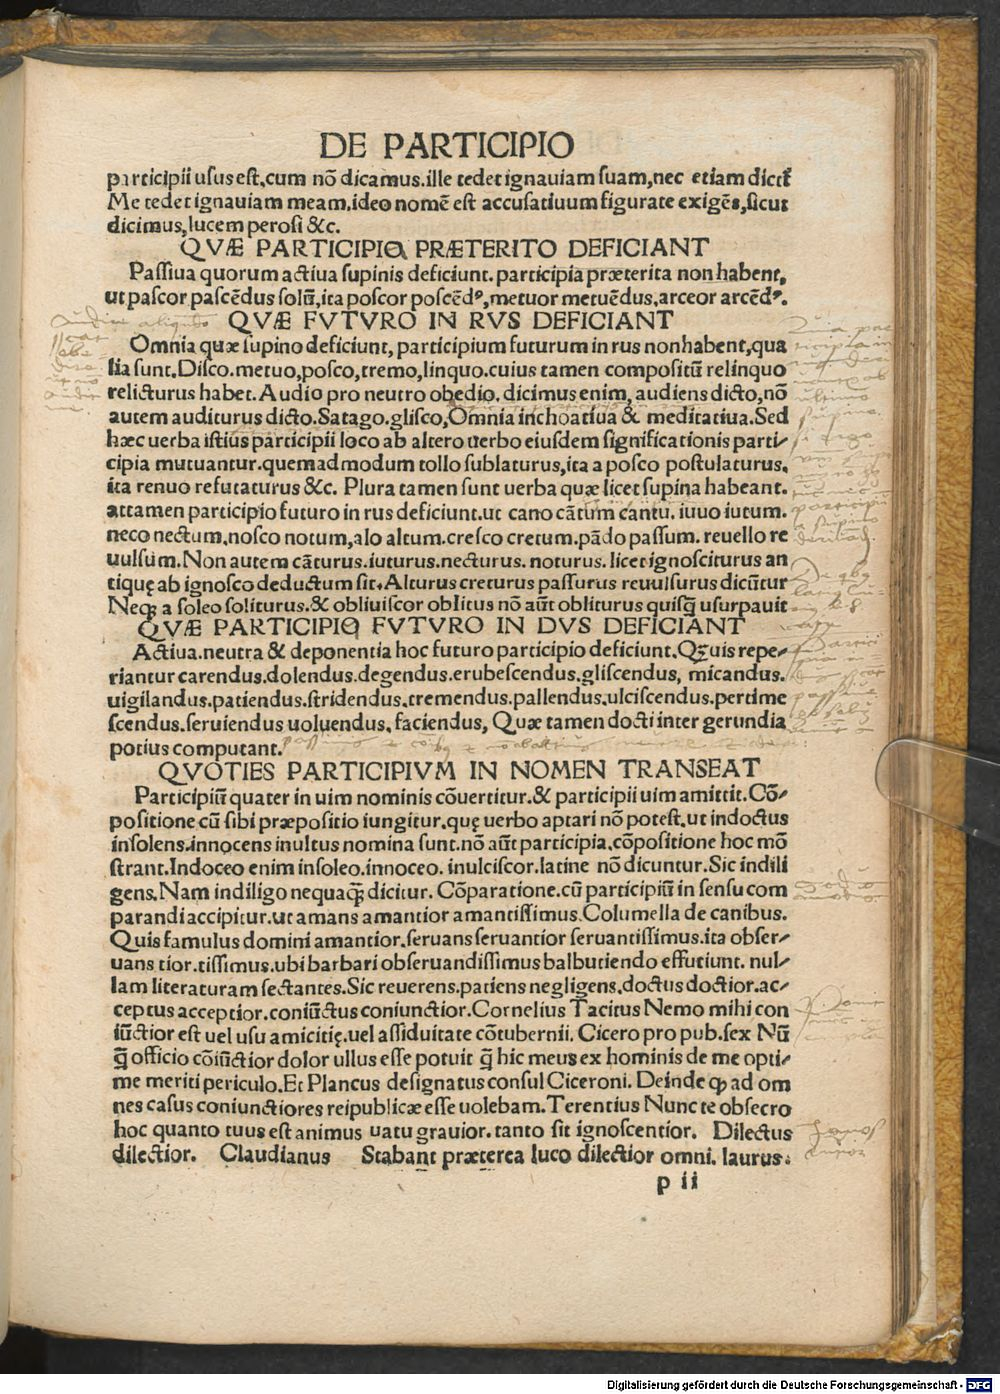 DE PARTICIPIO
participii usus est, cum nō dicamus. ille tedet ignauiam suam, nec etiam dicit̃
Me tedet ignauiam meam, ideo nomē est accusatiuum figurate exigēs, sicut
dicimus, lucem perosi &c.
QVÆ PARTICIPIO PRÆTERITO DEFICIANT
Passiua quorum actiua supinis deficiunt. participia præterita non habent,
ut pascor pascēdus solū, ita poscor poscēdꝰ, metuor metuēdus, arceor arcēdꝰ.
QVÆ FVTVRO IN RVS DEFICIANT
Omnia quæ supino deficiunt, participium futurum in rus nonhabent, qua
lia sunt. Disco. metuo, posco, tremo, linquo. cuius tamen compositū relinquo
relicturus habet. Audio pro neutro obedio. dicimus enim, audiens dicto, nō
autem auditurus dicto. Satago. glisco, Omnia inchoatiua & meditatiua. Sed
hæc uerba istius participii loco ab altero uerbo eiusdem significationis parti/
cipia mutuantur. quemadmodum tollo sublaturus, ita a posco postulaturus,
ita renuo refutaturus &c. Plura tamen sunt uerba quæ licet supina habeant.
attamen participio futuro in rus deficiunt. ut cano cātum cantu. iuuo iutum.
neco nectum, nosco notum, alo altum. cresco cretum. pādo passum. reuello re
uulsum. Non autem cāturus. iuturus. necturus. noturus. licet ignosciturus an
tiquę ab ignosco deductum sit. Alturus creturus passurus reuulsurus dicūtur
Neqꝫ a soleo soliturus. & obliuiscor oblitus nō aūt obliturus quisq̄ usurpauit
QVÆ PARTICIPIO FVTVRO IN DVS DEFICIANT
Actiua. neutra & deponentia hoc futuro participio deficiunt. Qꝫuis repe/
riantur carendus. dolendus. degendus. erubescendus. gliscendus, micandus.
uigilandus. patiendus. stridendus. tremendus. pallendus. ulciscendus. pertime
scendus. seruiendus uoluendus. faciendus, Quæ tamen docti inter gerundia
potius computant.
QVOTIES PARTICIPIVM IN NOMEN TRANSEAT
Participiū quater in uim nominis cōuertitur. & participii uim amittit. Cō/
positione cū sibi præpositio iungitur. quę uerbo aptari nō potest. ut indoctus
insolens. innocens inultus nomina sunt. nō aūt participia. cōpositione hoc mō
strant. Indoceo enim insoleo. innoceo. inulciscor. latine nō dicuntur. Sic indili
gens. Nam indiligo nequaqꝫ dicitur. Cōparatione. cū participiū in sensu com
parandi accipitur. ut amans amantior amantissimus. Columella de canibus.
Quis famulus domini amantior. seruans seruantior seruantissimus. ita obser/
uans tior. tissimus. ubi barbari obseruandissimus balbutiendo effutiunt. nul/
lam literaturam sectantes. Sic reuerens. patiens negligens. doctus doctior. ac/
ceptus acceptior. coniūctus coniunctior. Cornelius Tacitus Nemo mihi con
iūctior est uel usu amicitię. uel assiduitate cōtubernii. Cicero pro pub. sex Nū
q̄ officio cōiūctior dolor ullus esse potuit q̄ hic meus ex hominis de me opti/
me meriti periculo. Et Plancus designatus consul Ciceroni. Deinde ꝙ ad om
nes casus coniunctiores reipublicæ esse uolebam. Terentius Nunc te obsecro
hoc quanto tuus est animus uatu grauior. tanto sit ignoscentior. Dilectus
dilectior. Claudianus Stabant præterea luco dilectior omni. laurus:
p ii
Digitalisierung gefördert durch die Deutsche Forschungsgemeinschaft - DFG